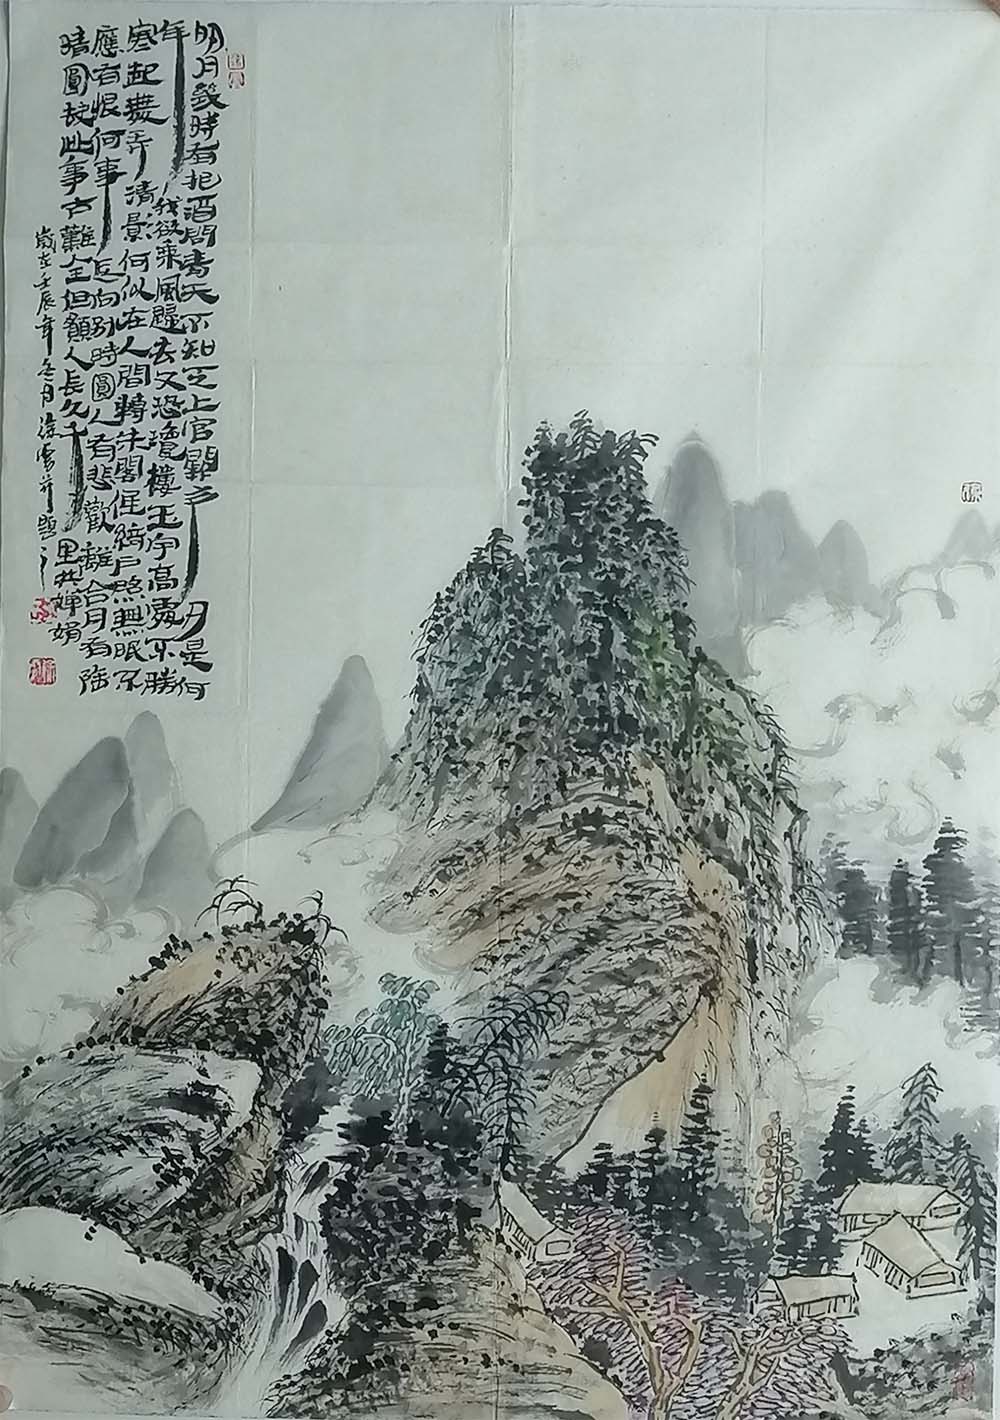 明月幾時有把酒問青天不知天上宮闕今夕是何
年我欲乘風歸去又恐瓊樓玉宇高處不勝
寒起舞弄清影何似在人間轉朱閣低綺戶照無眠不
應有恨何事長向別時圓人有悲歡離合月有陰
晴圓缺此事古難全但願人長久千里共嬋娟
歲在壬辰年冬月徐雲并題